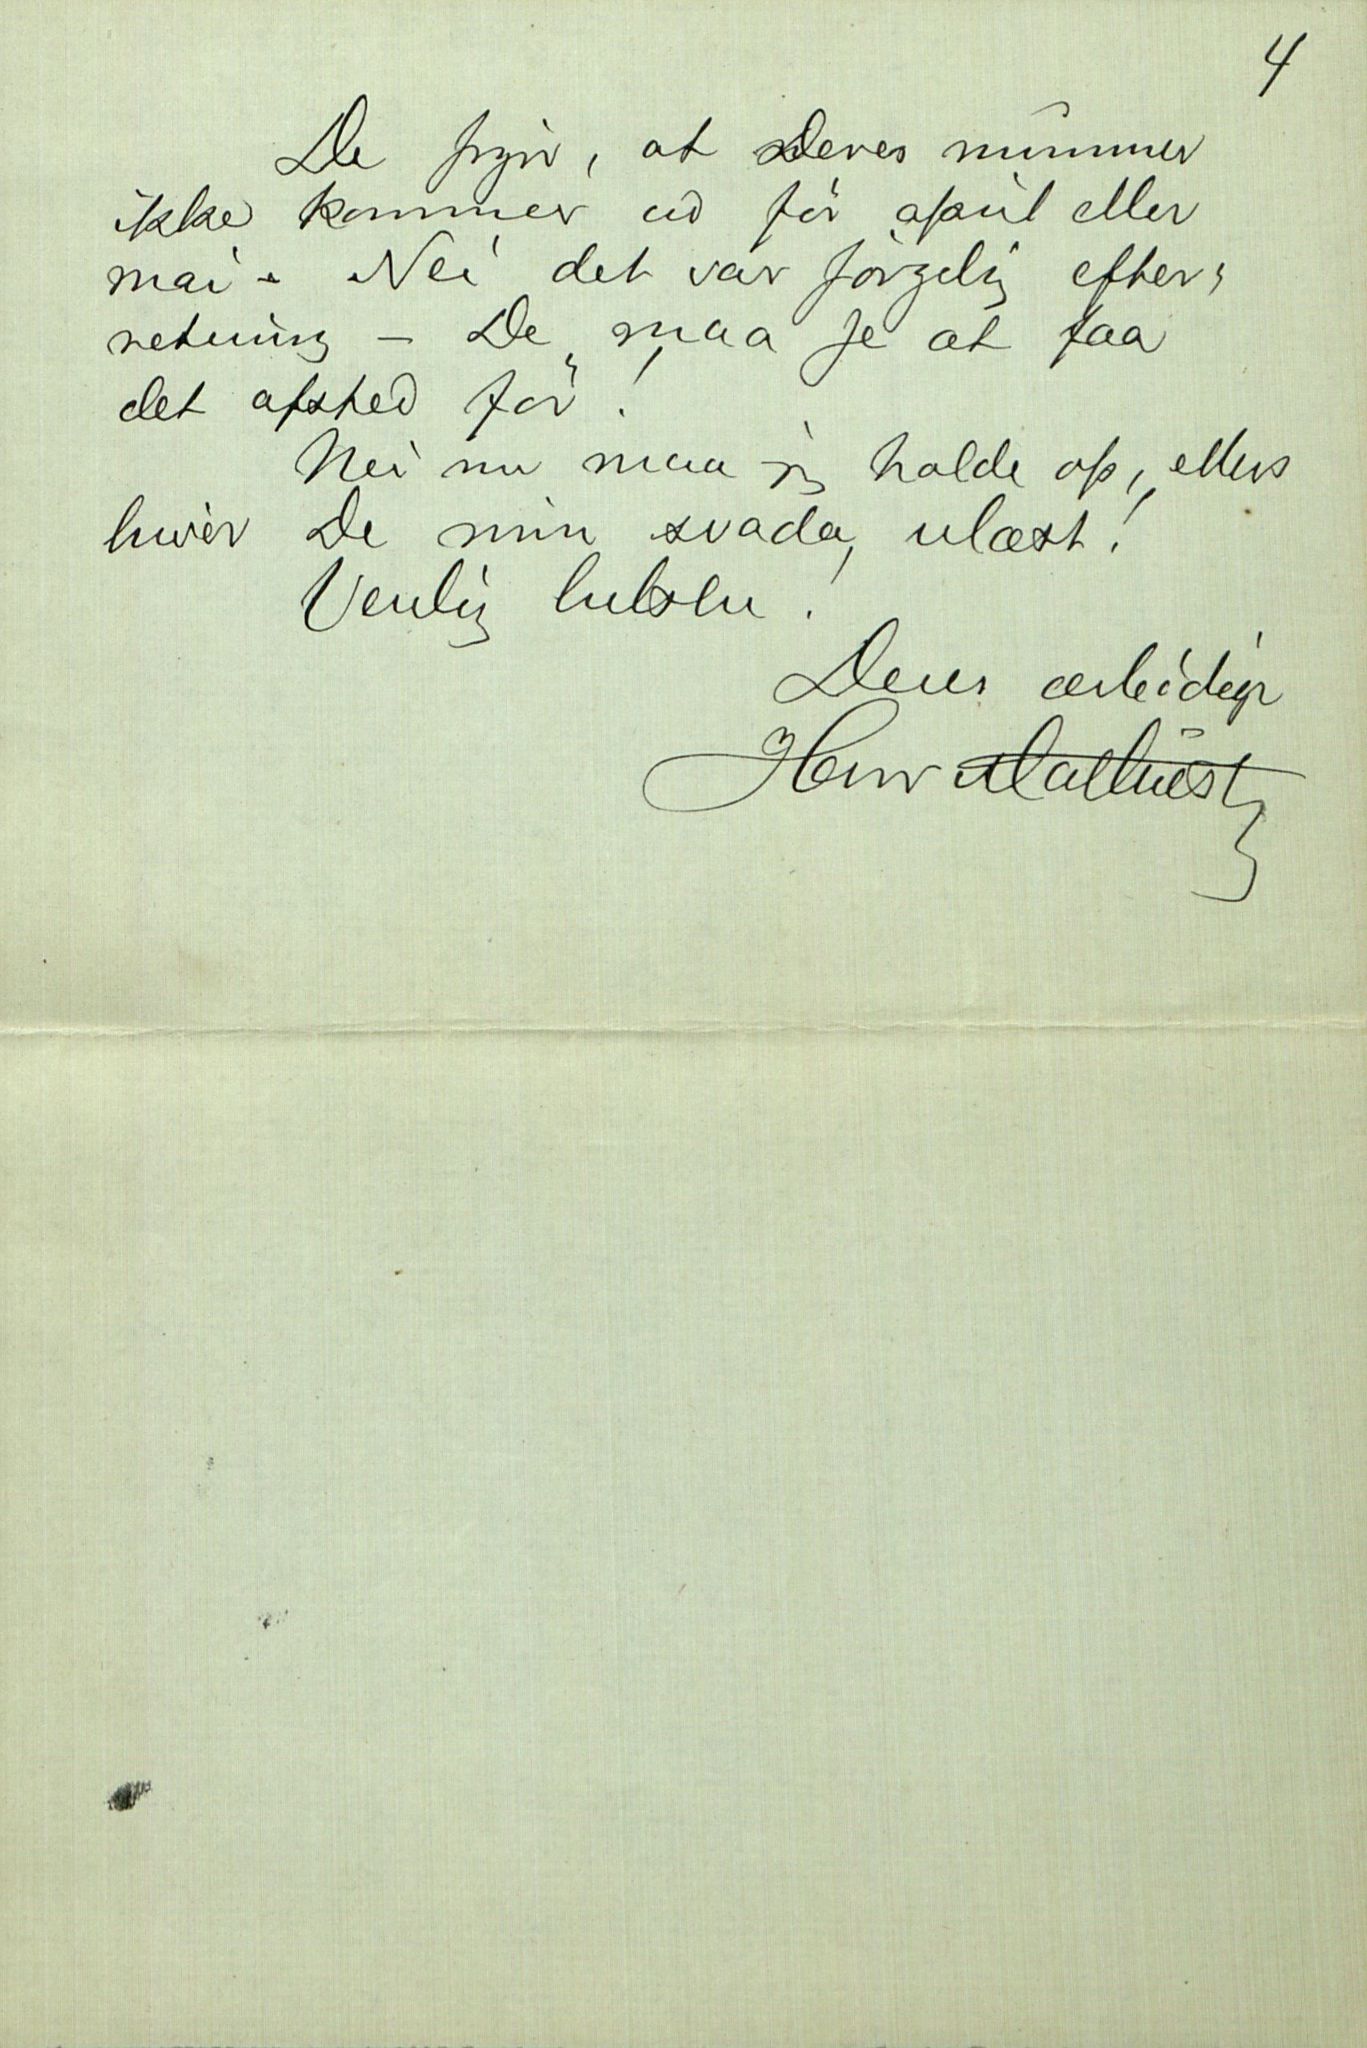 4
De siger, at Deres nummer
ikke kommer ud før april eller
mai. Nei det var sørgelig efter,
retning – De maa se at faa
det afsted før!
Nei nu maa jeg holde op, ellers
bliver De min svada ulæst!
Venlig hilsen!
Deres ærbødige
Henr Mathiesen